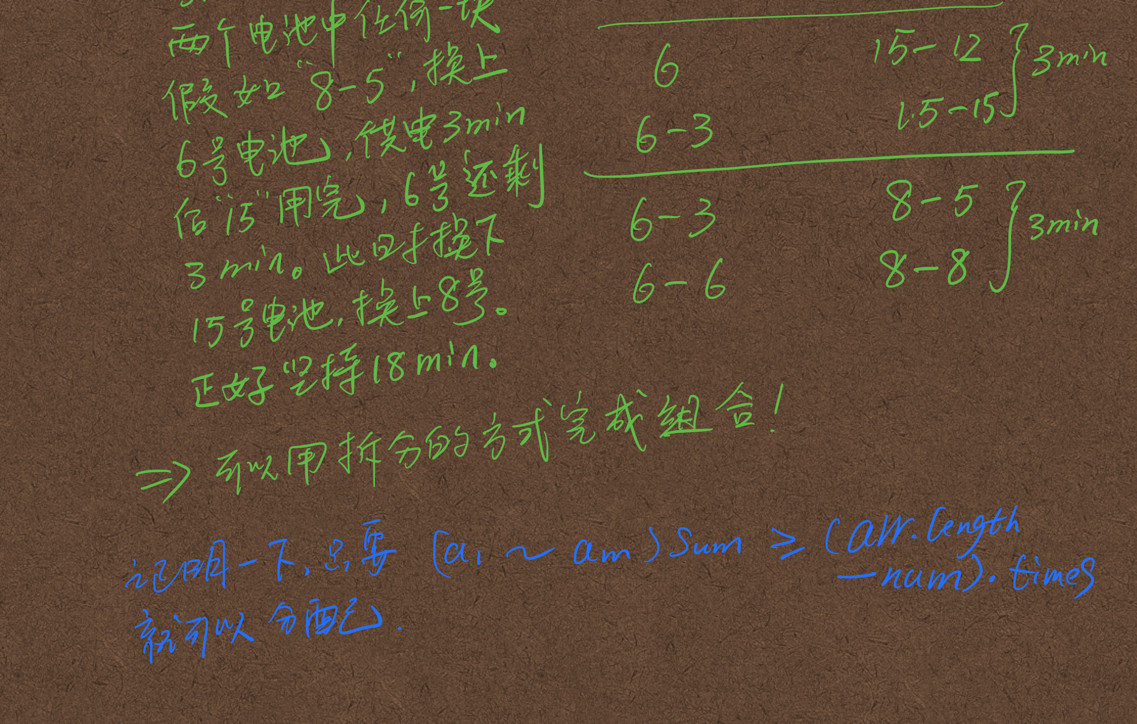 两个电池中任何一块
假如"8-5",换上
6号电池,供电3min
后"15"用完,6号还剩
3min。此时换下
15号电池,换上8号。
正好坚持18min。
6 15-12 3min
6-3 15-15
6-3 8-5 3min
6-6 8-8
=> 可以用拆分的方式完成组合!
证明一下,只要 (a₁ ~ am) Sum ≥ (arr.length
-num).times
就可以分配.